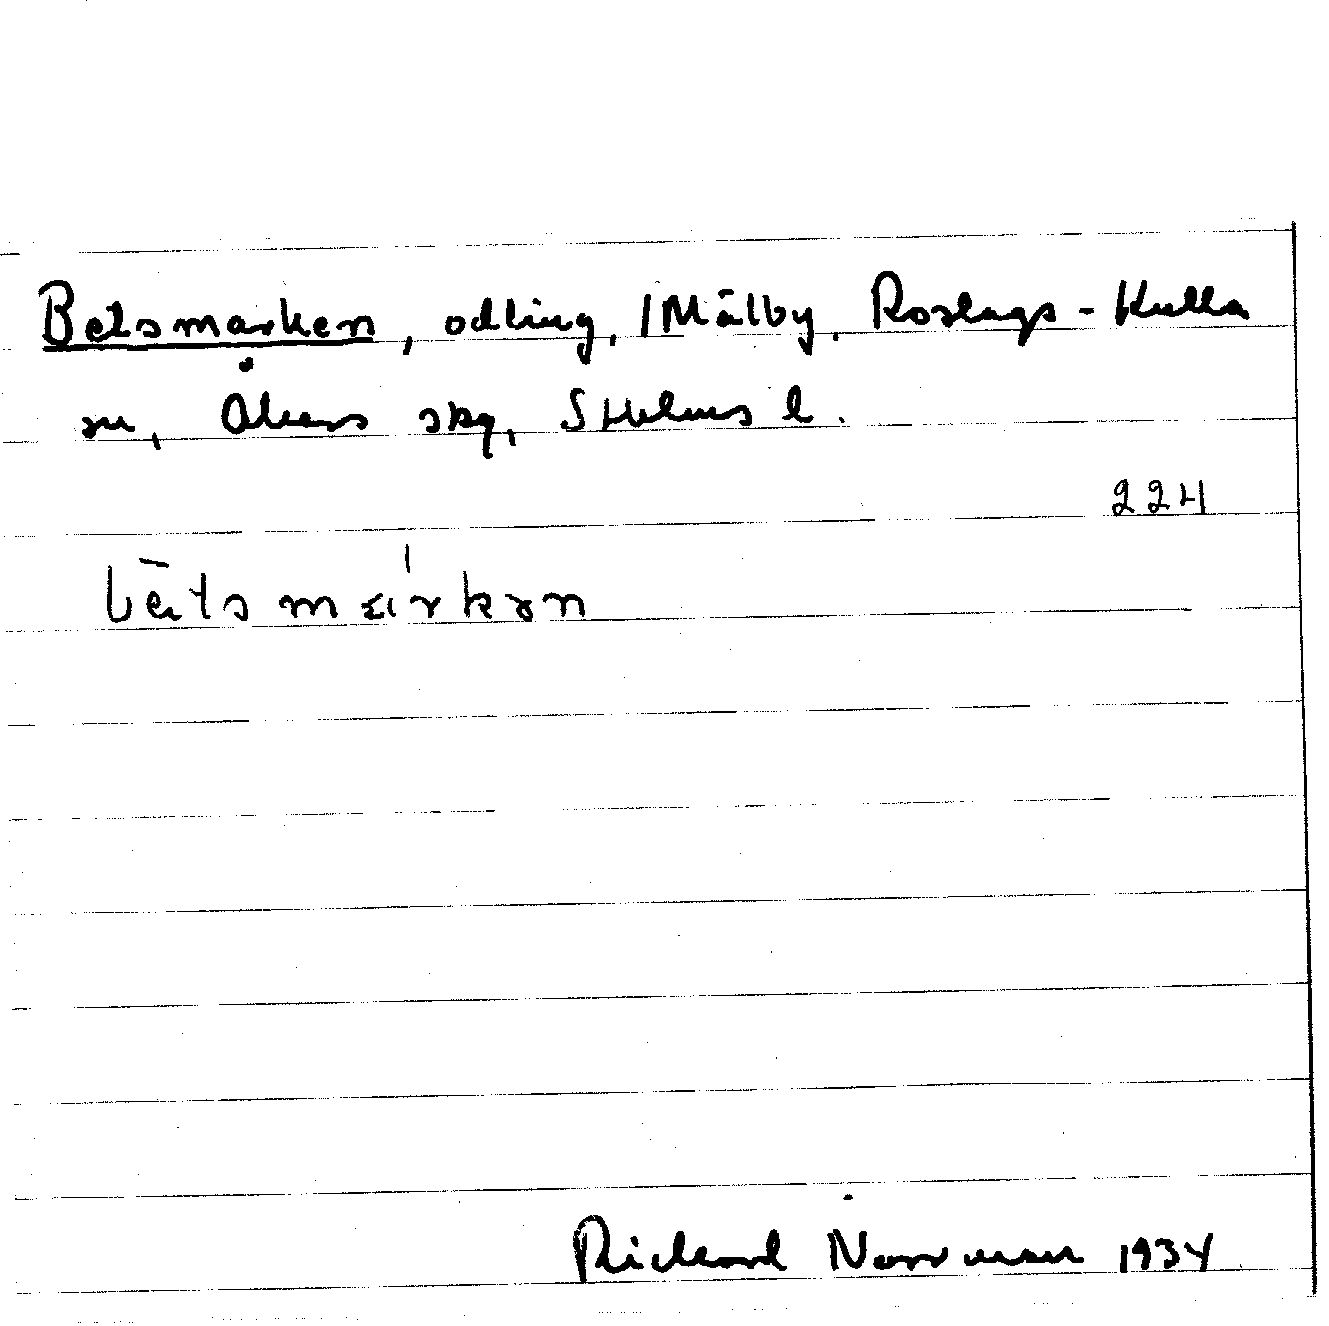 Betsmarken, odling, Målby, Roslags-Kulla
sn, Åkers skg, Sthlms l.
224
Rickard Norrman 1934